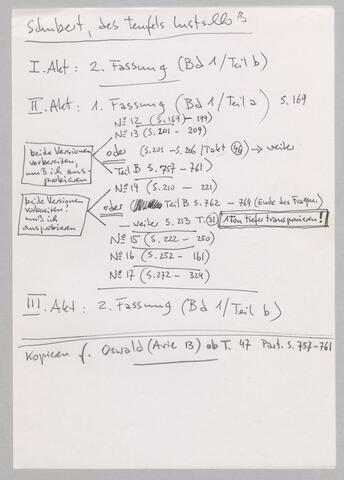 Schubert, des Teufels Lustschloß
I. Akt: 2. Fassung (Bd 1/Teil b)
II. Akt: 1. Fassung (Bd 1/Teil a) S. 169
No 12 (S. 169 - 199)
No 13 (S. 201 - 209)
beide Versionen vorbereiten, muß ich ausprobieren
oder (S. 201 - S. 206 / Takt 46) → weiter
Teil B S. 757 - 761)
No 14 (S. 210 - 221)
beide Versionen vorbereiten, muß ich ausprobieren
oder Teil B S. 762 - 764 (Ende des Fragm.)
- weiter S. 213 T. 31 1 Ton tiefer transponieren!
No 15 (S. 222 - 250)
No 16 (S. 252 - 161)
No 17 (S. 272 - 324)
III. Akt: 2. Fassung (Bd 1/Teil b)
Kopieren f. Oswald (Arie 13) ab T. 47 Part. S. 757-761